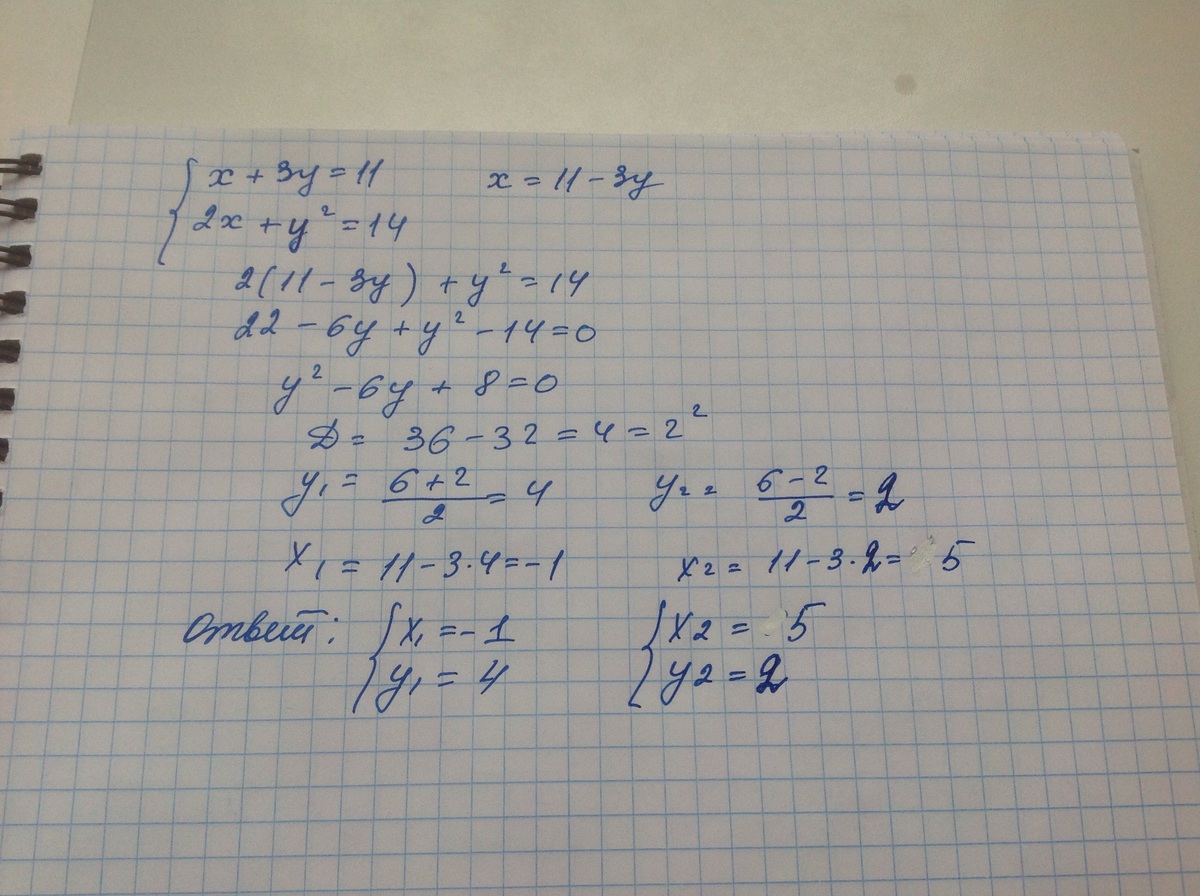 x + 3y = 11    x = 11 - 3y
2x + y² = 14
2(11 - 3y) + y² = 14
22 - 6y + y² - 14 = 0
y² - 6y + 8 = 0
D = 36 - 32 = 4 = 2²
y₁ = (6 + 2)/2 = 4    y₂ = (6 - 2)/2 = 2
x₁ = 11 - 3·4 = -1    x₂ = 11 - 3·2 = 5
Ответ: { x₁ = -1    { x2 = 5
y₁ = 4    y2 = 2